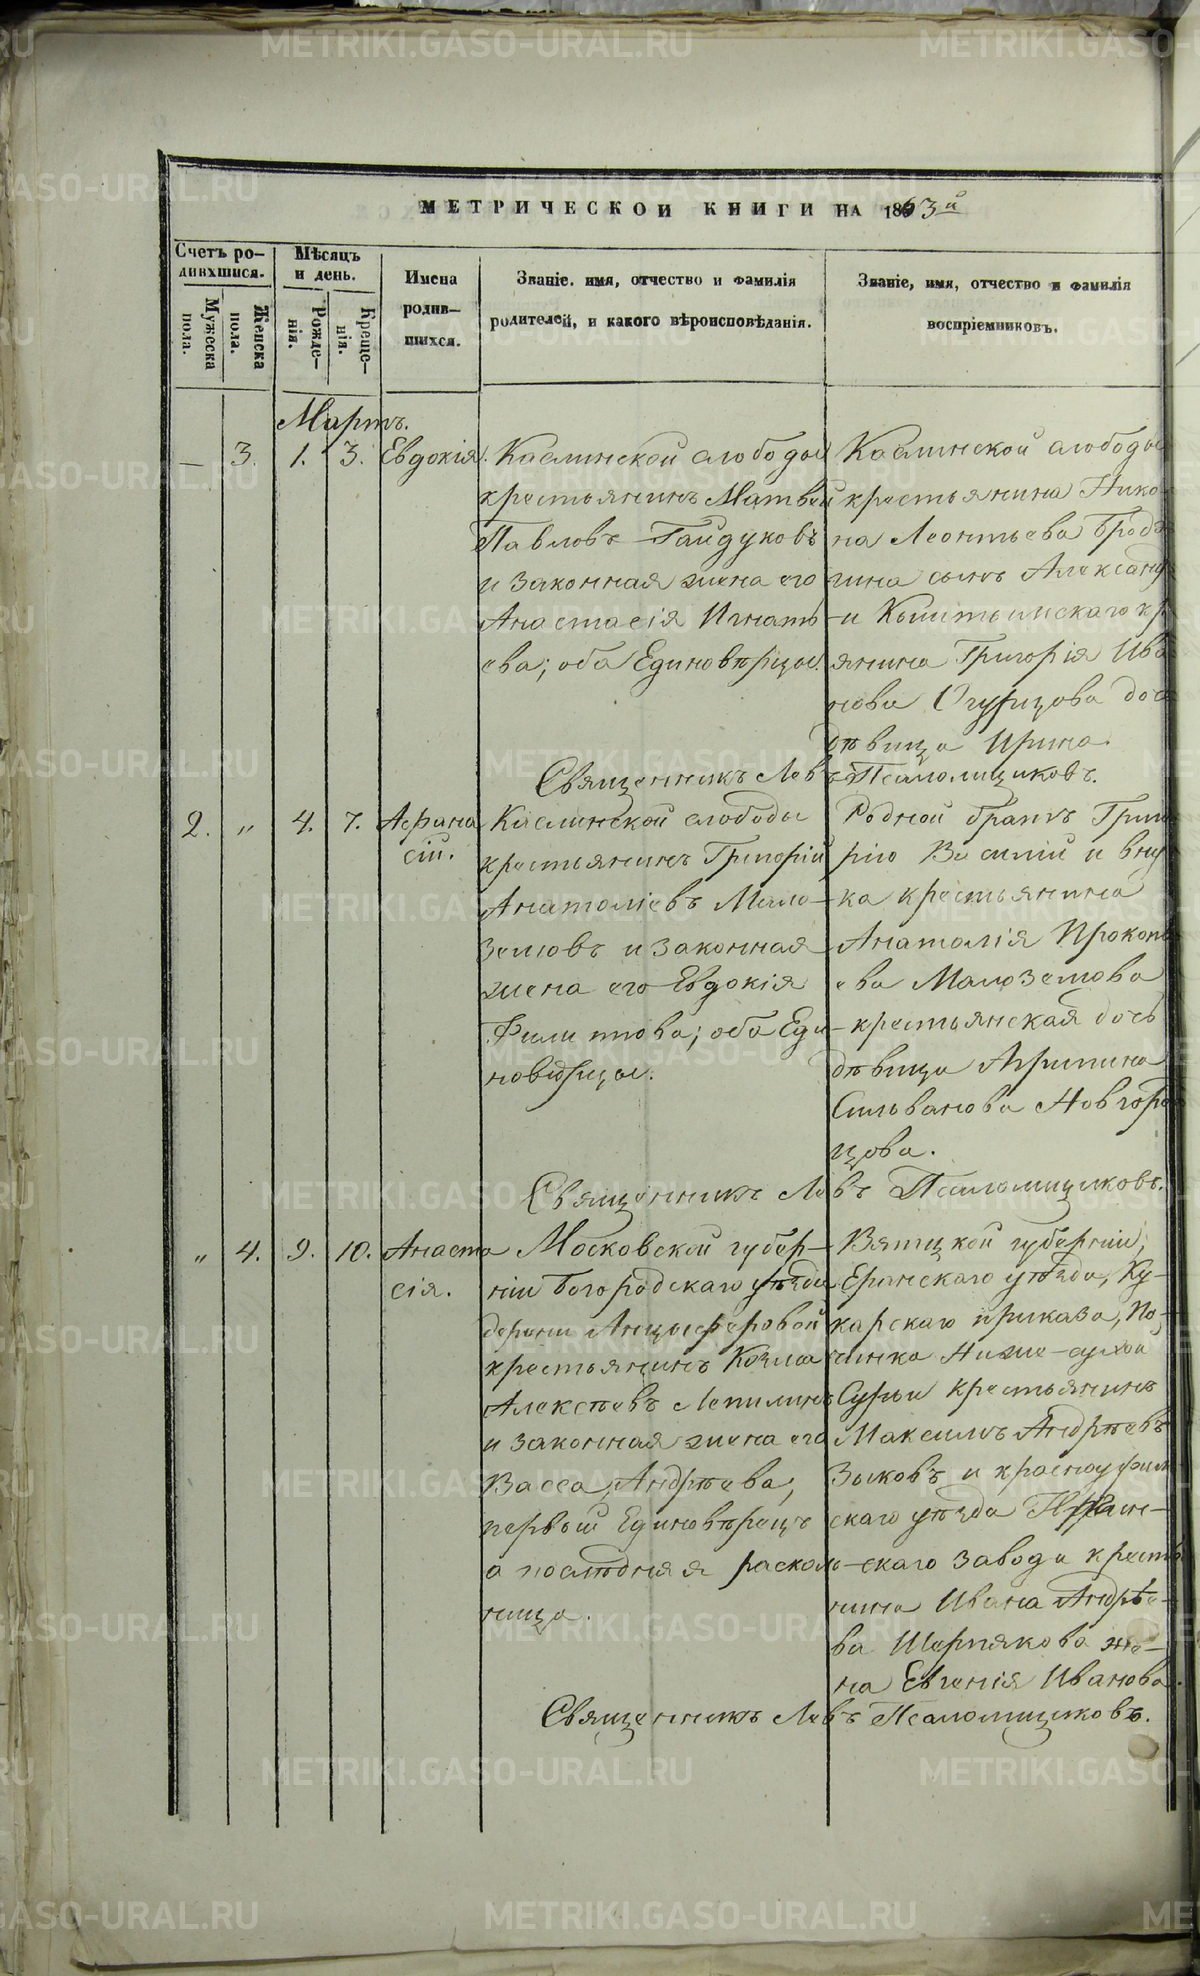 МЕТРИЧЕСКОЙ КНИГИ НА 1863й
Счетъ ро-
дившихся.
Мужеска
пола.
Женска
пола.
Мѣсяцъ
и день.
Рожде-
нія.
Креще-
нія.
Имена
родив-
шихся.
Званіе, имя, отчество и фамилія
родителей, и какого вѣроисповѣданія.
Званіе, имя, отчество и фамилія
воспріемниковъ.
Мартъ.
— 3. 1. 3. Евдокія.
Каслинской слободы
крестьянинъ Матвей
Павловъ Гайдуковъ
и законная жена его
Анастасія Игнать-
ева; оба Единовѣрцы.
Каслинской слободы
крестьянина Нико-
на Леонтьева Бродя
гина сынъ Александ
и Кыштымскаго кр
янина Григорія Ива
нова Огурцова доч
дѣвица Ирина.
Священникъ Левъ Псаломщиковъ.
2. „ 4. 7. Афана
сій.
Каслинской слободы
крестьянинъ Григорій
Анатоліевъ Мало-
земовъ и законная
жена его Евдокія
Филиппова; оба Еди-
новѣрцы.
Родной братъ Григо
рію Василій и внуч
ка крестьянина
Анатолія Прокопь
ева Малоземова
крестьянская дочь
дѣвица Агрипина
Сильванова Новгород
цова.
Священникъ Левъ Псаломщиковъ.
„ 4. 9. 10. Анаста
сія.
Московской губер-
ніи Богородскаго уѣзда
деревни Анцыферовой
крестьянинъ Козма
Алексѣевъ Лепилинъ
и законная жена его
Васса Андрѣева;
первый Единовѣрецъ
а послѣдняя расколь-
ница.
Вятцкой губерніи,
Еранскаго уѣзда, Ку-
карскаго приказа, По-
чинка Ниже-сухой
крестьянинъ
Максимъ Андрѣевъ
Зыковъ и красноуфим
скаго уѣзда
скаго завода кресть
нина Ивана Андрѣе-
ва Шерпякова же-
на Евгенія Иванова.
Священникъ Левъ Псаломщиковъ.
METRIKI.GASO-URAL.RU